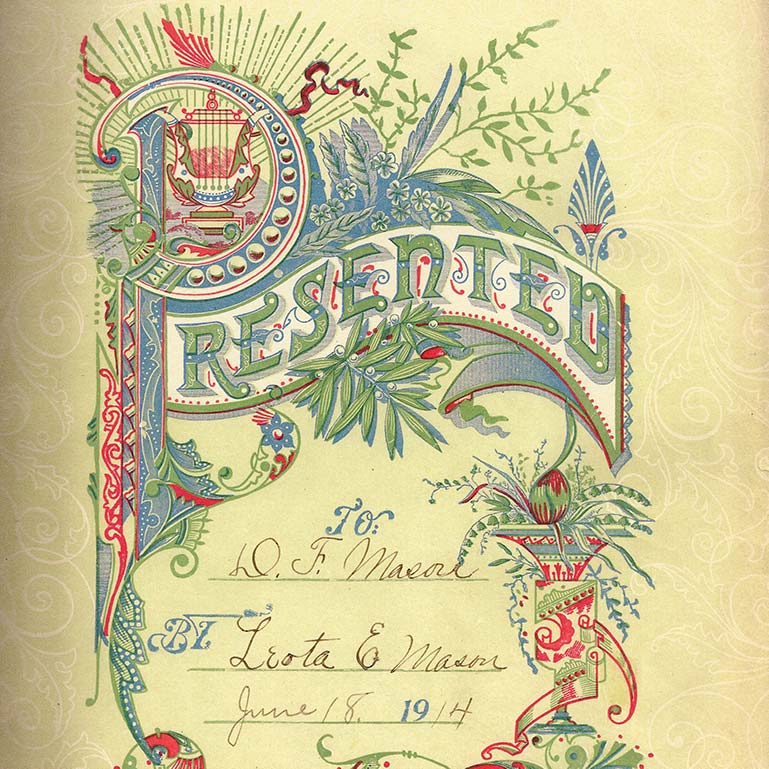 PRESENTED
TO:
D. F. Mason
BY
Leota E Mason
June 18. 1914